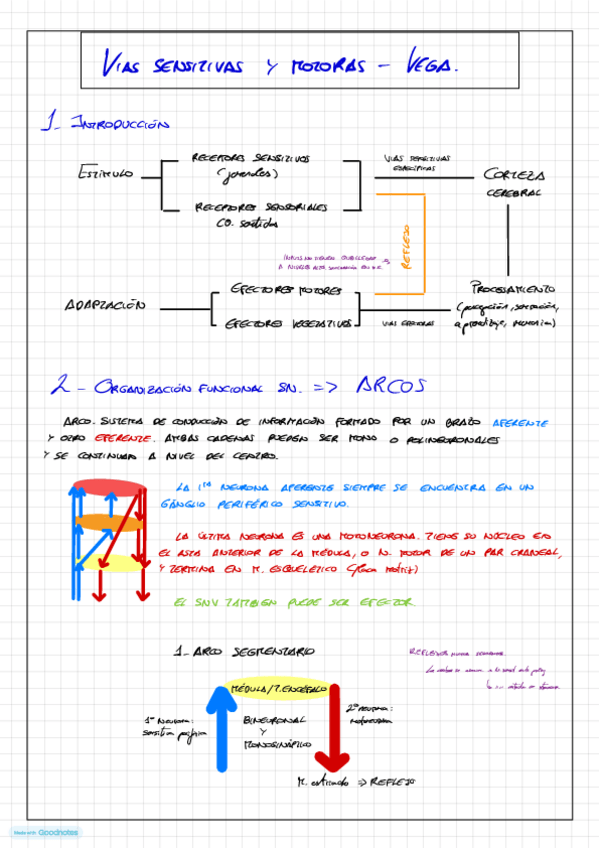 VIAS SENSITIVAS Y MOTORAS - VEGA.
1- INTRODUCCIÓN
ESTIMULO
RECEPTORES SENSITIVOS
(generales)
RECEPTORES SENSORIALES
VIAS SENSITIVAS
ESPECÍFICAS
CORTEZA
CEREBRAL
REFLEJO
ADAPTACIÓN
EFECTORES MOTORES
EFECTORES VEGETATIVOS
VIAS EFECTORAS
PROCESAMIENTO
(percepción, sensación,
aprendizaje, memoria)
2- ORGANIZACIÓN FUNCIONAL SN. => ARCOS
ARCO. SISTEMA DE CONDUCCIÓN DE INFORMACIÓN FORMADO POR UN BRAZO AFERENTE
Y OTRO EFERENTE. AMBAS CADENAS PUEDEN SER MONO O POLINEURONALES
Y SE CONTINUAN A NIVEL DEL CENTRO.
LA 1ra NEURONA AFERENTE SIEMPRE SE ENCUENTRA EN UN
GÁNGLIO PERIFÉRICO SENSITIVO.
LA ÚLTIMA NEURONA ES UNA MOTONEURONA. TIENE SU NÚCLEO EN
EL ASTA ANTERIOR DE LA MÉDULA, O N. MOTOR DE UN PAR CRANEAL,
Y TERMINA EN M. ESQUELÉTICO (placa motriz)
EL SNV TAMBIEN PUEDE SER EFECTOR
1- ARCO SEGMENTARIO
MÉDULA/T.ENCÉFALO
1ª NEURONA:
sensitiva periférica
BINEURONAL
Y
MONOSINÁPTICO
2ª neurona:
motoneurona
M. estriado => REFLEJO
Made with Goodnotes